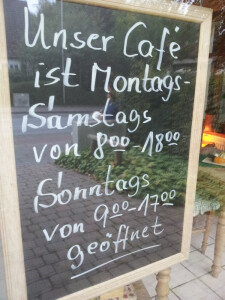 Unser Café
ist Montags-
Samstags
von 800-1800
Sonntags
von 900-1700
geöffnet